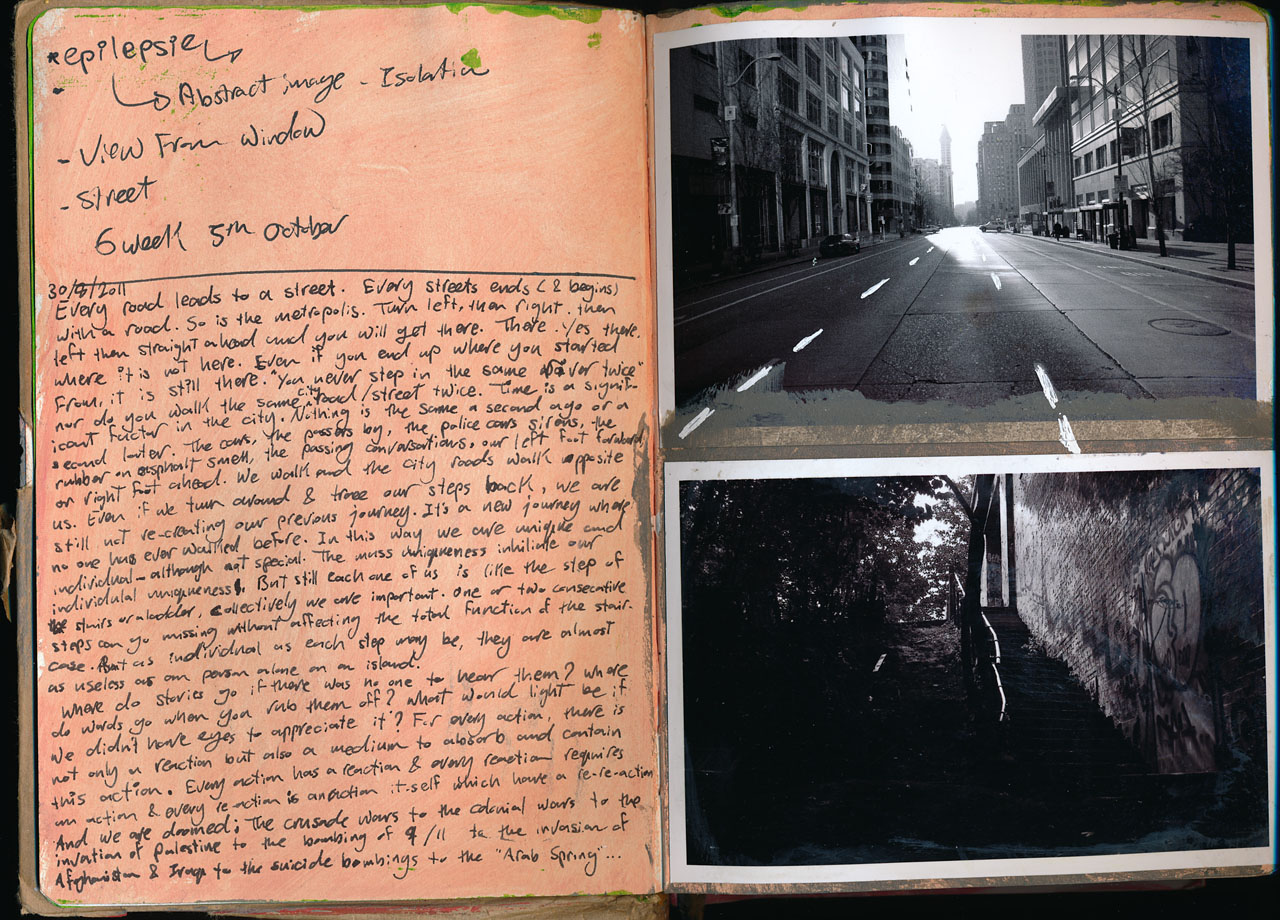 *epilepsie
Abstract image - Isolation
- View From Window
- Street
6 week 5th October
30/9/2011
Every road leads to a street. Every streets ends (& begins)
with a road. So is the metropolis. Turn left, then right, then
left then straight ahead and you will get there. There. Yes there,
where it is not here. Even if you end up where you started
From, it is still there. "You never step in the same River twice"
nor do you walk the same city road/street twice. Time is a signif-
icant factor in the city. Nothing is the same a second ago or a
second later. The cars, the passers by, the police cars sirens, the
rubber on asphalt smell, the passing conversations, our left foot forward
or right foot ahead. We walk and the city roads walk opposite
us. Even if we turn around & trace our steps back, we are
still not re-creating our previous journey. It's a new journey where
no one has ever walked before. In this way we are unique and
individual - although not special. The mass uniqueness inhiliate our
individulal uniqueness. But still each one of us is like the step of
stairs or a ladder, collectively we are important. One or two consecutive
steps can go missing without affecting the total function of the stair-
case. But as individual as each step may be, they are almost
as useless as am person alone on an island.
Where do stories go if there was no one to hear them? where
do words go when you rub them off? what would light be if
we didn't have eyes to appreciate it? For every action, there is
not only a reaction but also a medium to absorb and contain
this action. Every action has a reaction & every reaction requires
an action & every re-action is an action it-self which have a re-re-action
And we are doomed; The crusade wars to the colonial wars to the
invation of palestine to the bombing of 9/11 to the invasion of
Afghanistan & Iraq to the suicide bombings to the "Arab Spring"...